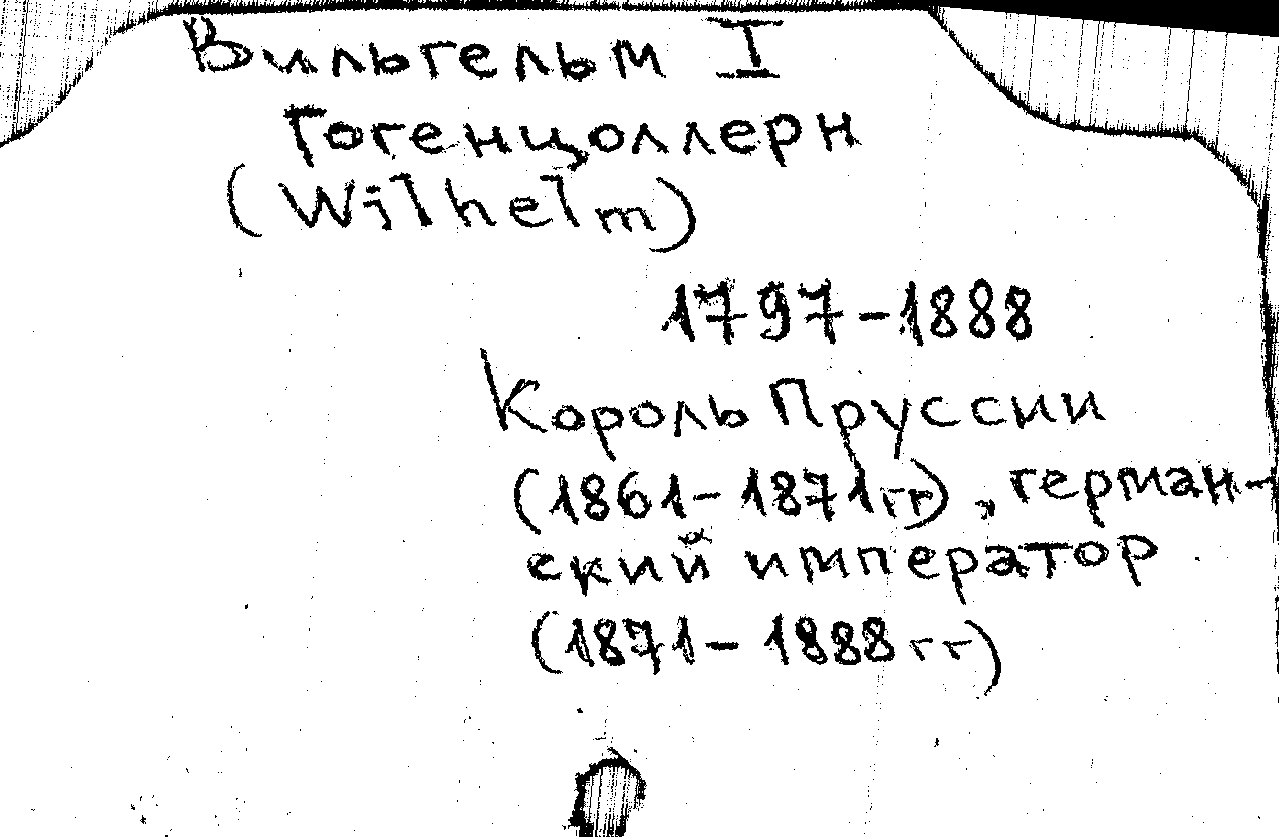 Вильгельм I
Гогенцоллерн
(Wilhelm)
1797-1888
Король Пруссии
(1861-1871гг), герман-
ский император
(1871-1888гг)